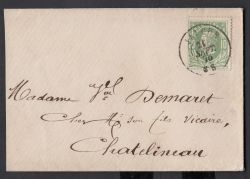 Madame Vve Demaret
chez Mr son fils Vicaire,
Chatelineau